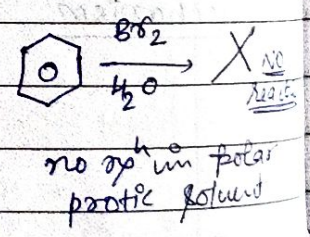 Br2
H2O
X NO
Reactn
no rxn in polar
protic solvent